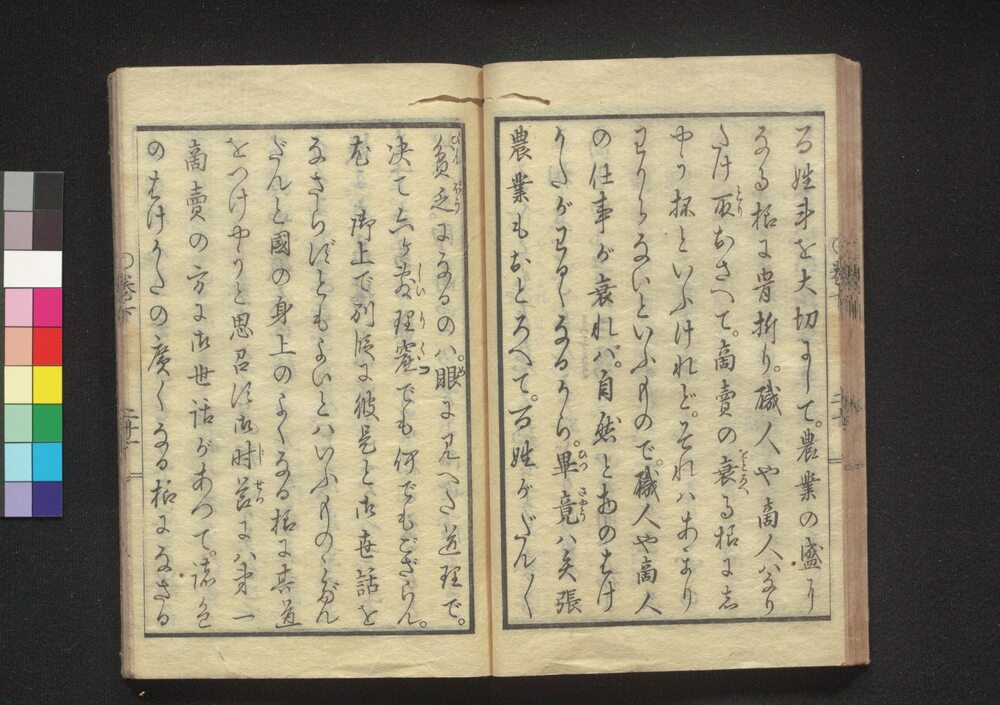 百姓事を大切にして。農業の盛り
なる様に骨折り。職人や商人ハなり
たけ取おさへて。商賣の衰る様にし
やう抔といふけれど。それハあまり
わからないといふもので。職人や商人
の仕事が衰れバ。自然と物のはけ
かたがわるくなるから。畢竟ハ矢張
農業もおとろへて。百姓がだん〱
貧乏になるのハ。眼に見へた道理で。
決て六ヶ敷理窟でも何でもござらん。
尤も御上で別段に彼是と御世話を
なさらずともよいとハいふものゝ。だん
だんと國の身上のよくなる様に其道
をつけやうと思召す御時節にハ第一
商賣の方に御世話があつて。諸色
のはけかたの廣くなる様になさる